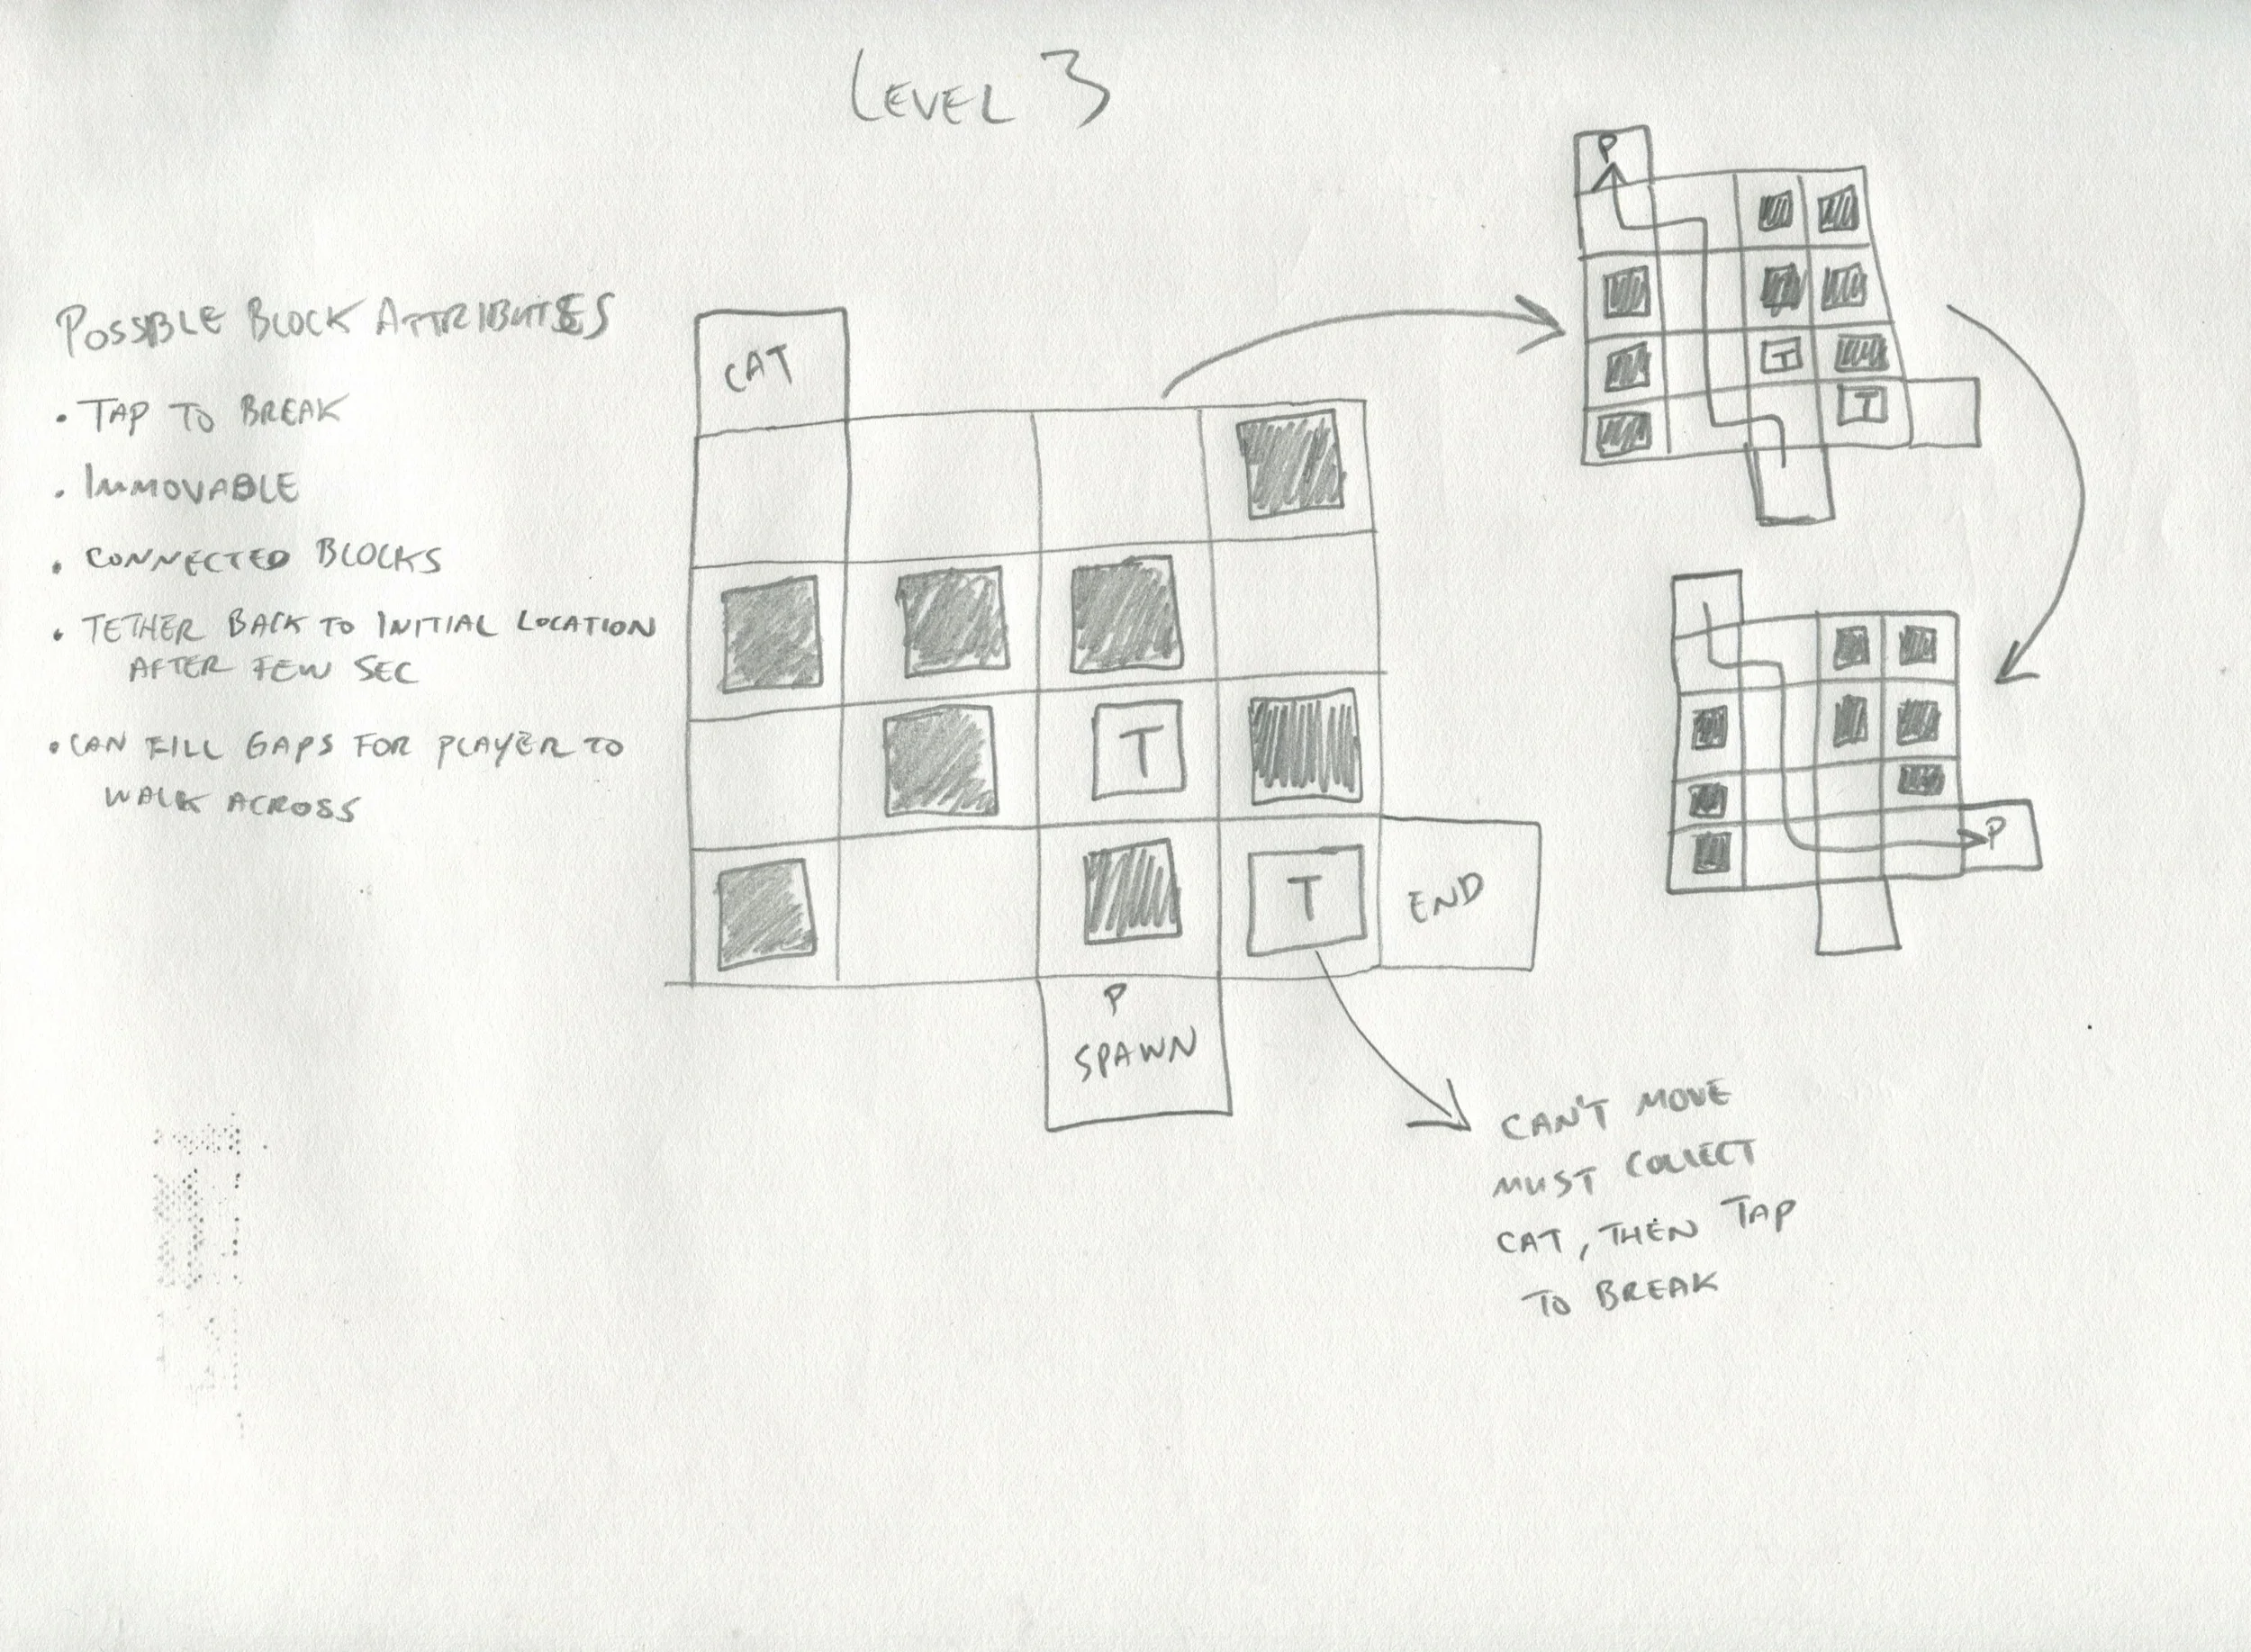 LEVEL 3
POSSIBLE BLOCK ATTRIBUTES
• TAP TO BREAK
• IMMOVABLE
• CONNECTED BLOCKS
• TETHER BACK TO INITIAL LOCATION
AFTER FEW SEC
• CAN FILL GAPS FOR PLAYER TO
WALK ACROSS
CAT
T
T
END
P
SPAWN
CAN'T MOVE
MUST COLLECT
CAT, THEN TAP
TO BREAK
P
T
T
P